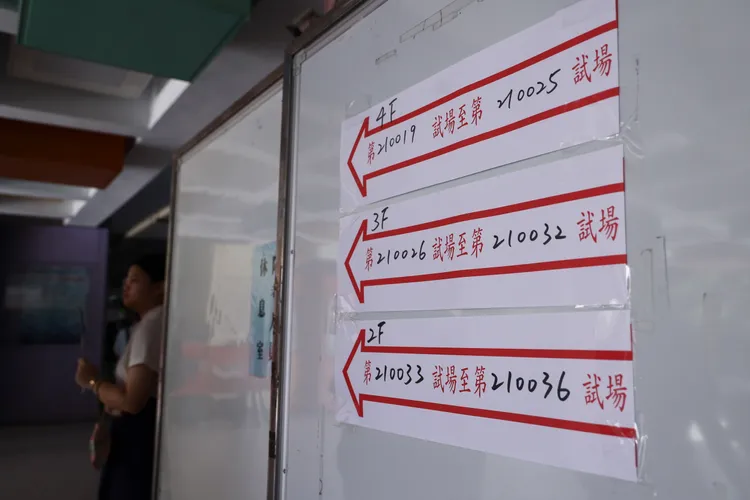 4F
第210019 試場至第 210025 試場
3F
第210026 試場至第210032 試場
2F
第210033 試場至第210036 試場
休息室